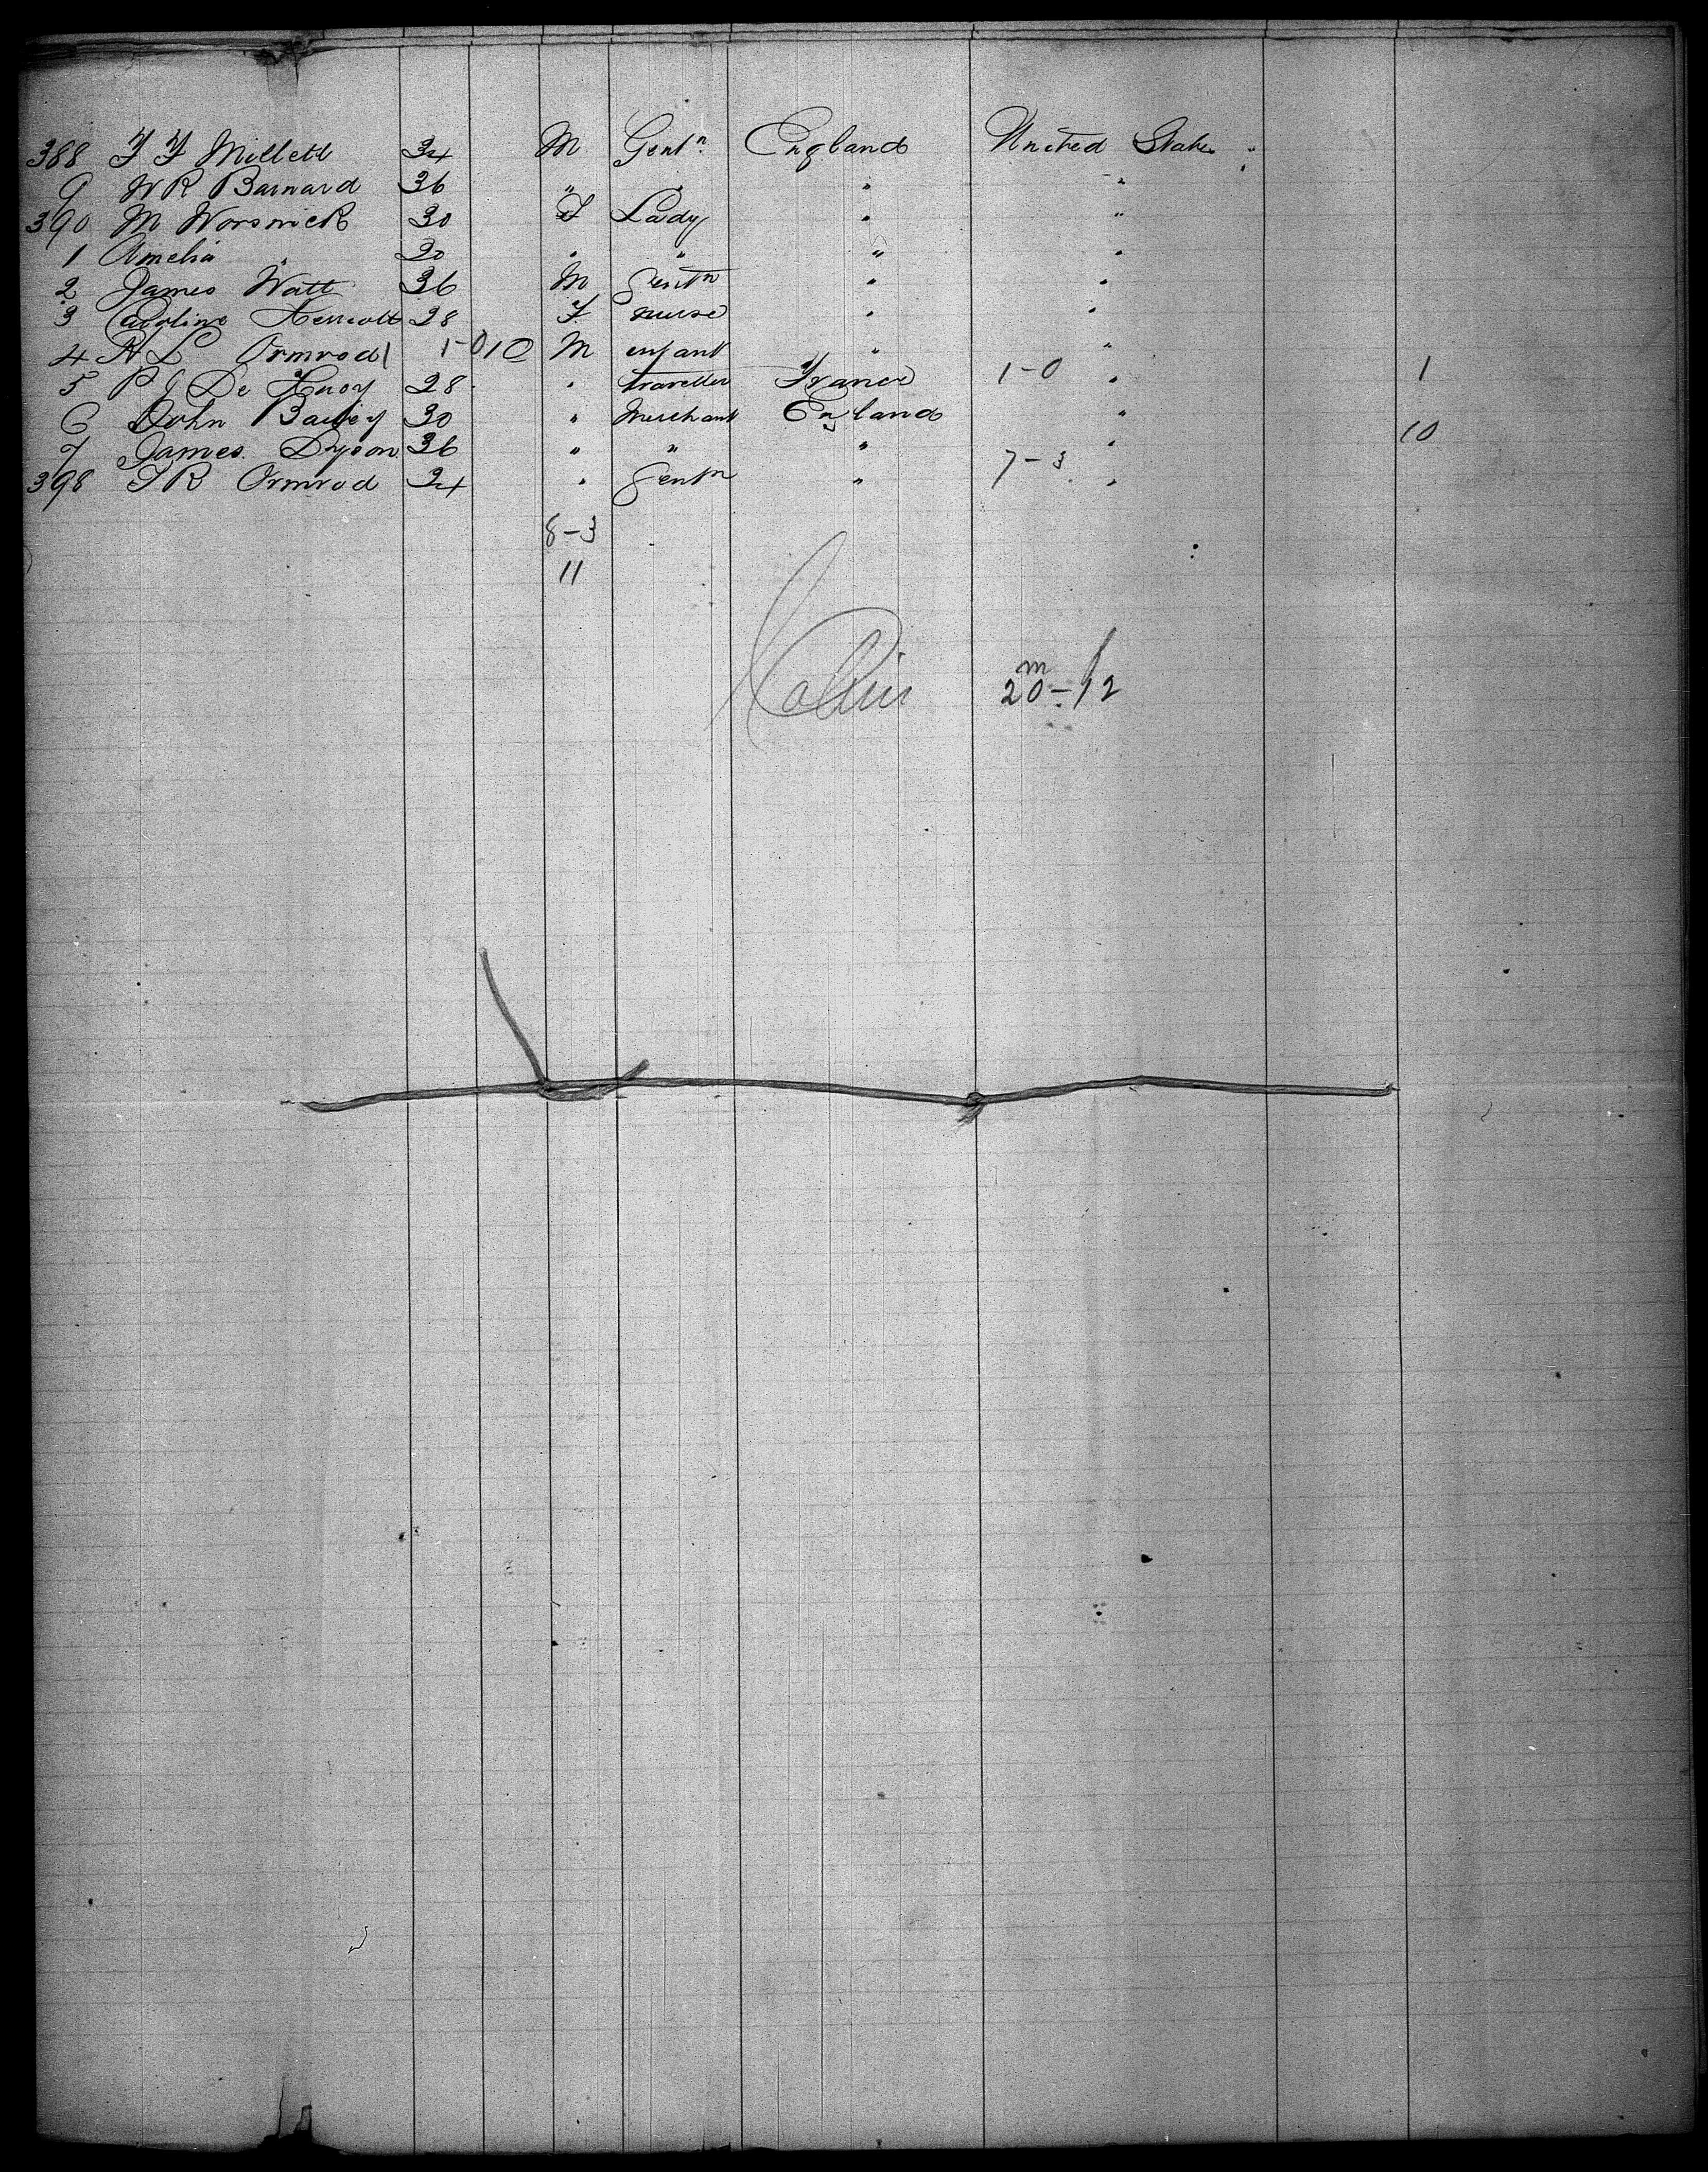 388 F F Millett 34 M Gentn. England United States
9 W R Barnard 36 " " " "
390 M Worswick 30 F Lady " "
1 Amelia " 20 " " " "
2 James Watt 36 M Gentn " "
3 Caroline 28 F. nurse " "
4 Ormrod 1-0 10 M infant " "
5 P J De 28 " traveller France 1-0 " 1
6 John Bailey 30 " Merchant England "
7 James Dyson 36 " " " " 10
398 T R Ormrod 24 " Gentn " 7-3 "
8-3
11
Collin m 20-12